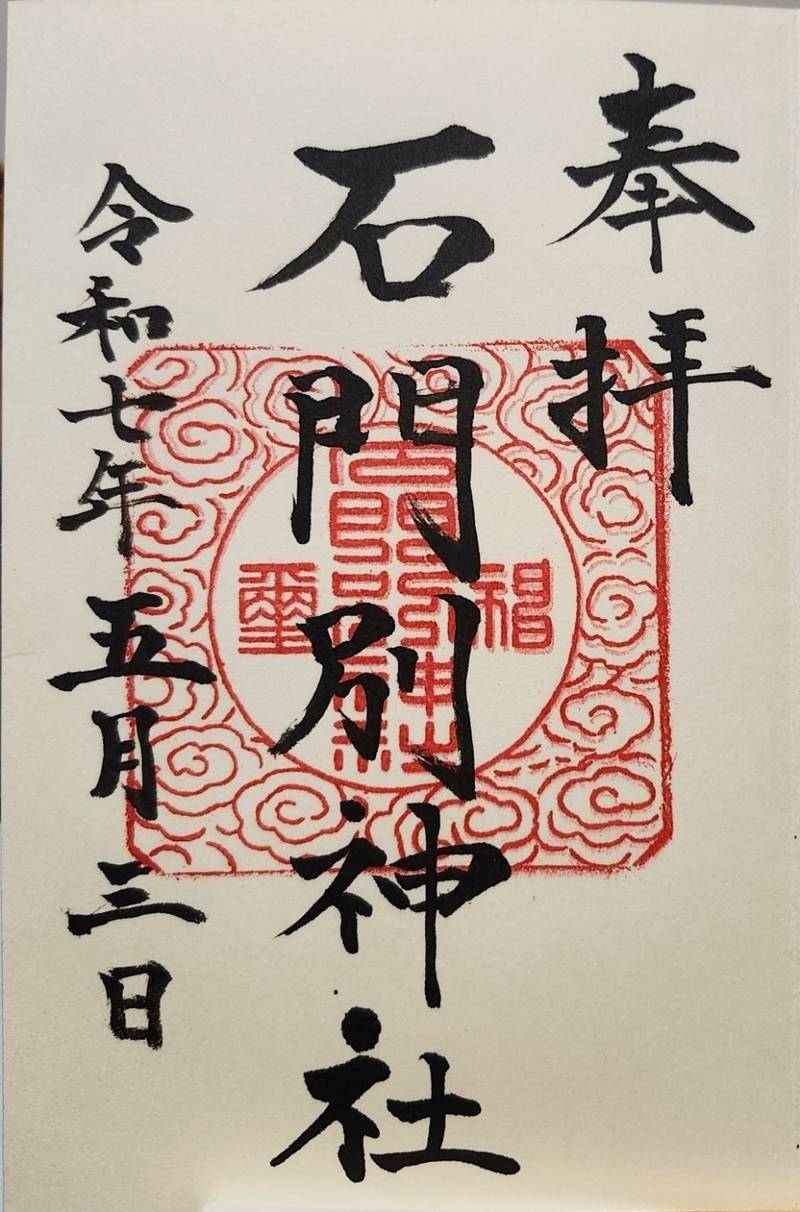 奉拝
石門別神社
令和七年五月三日
石門別神社